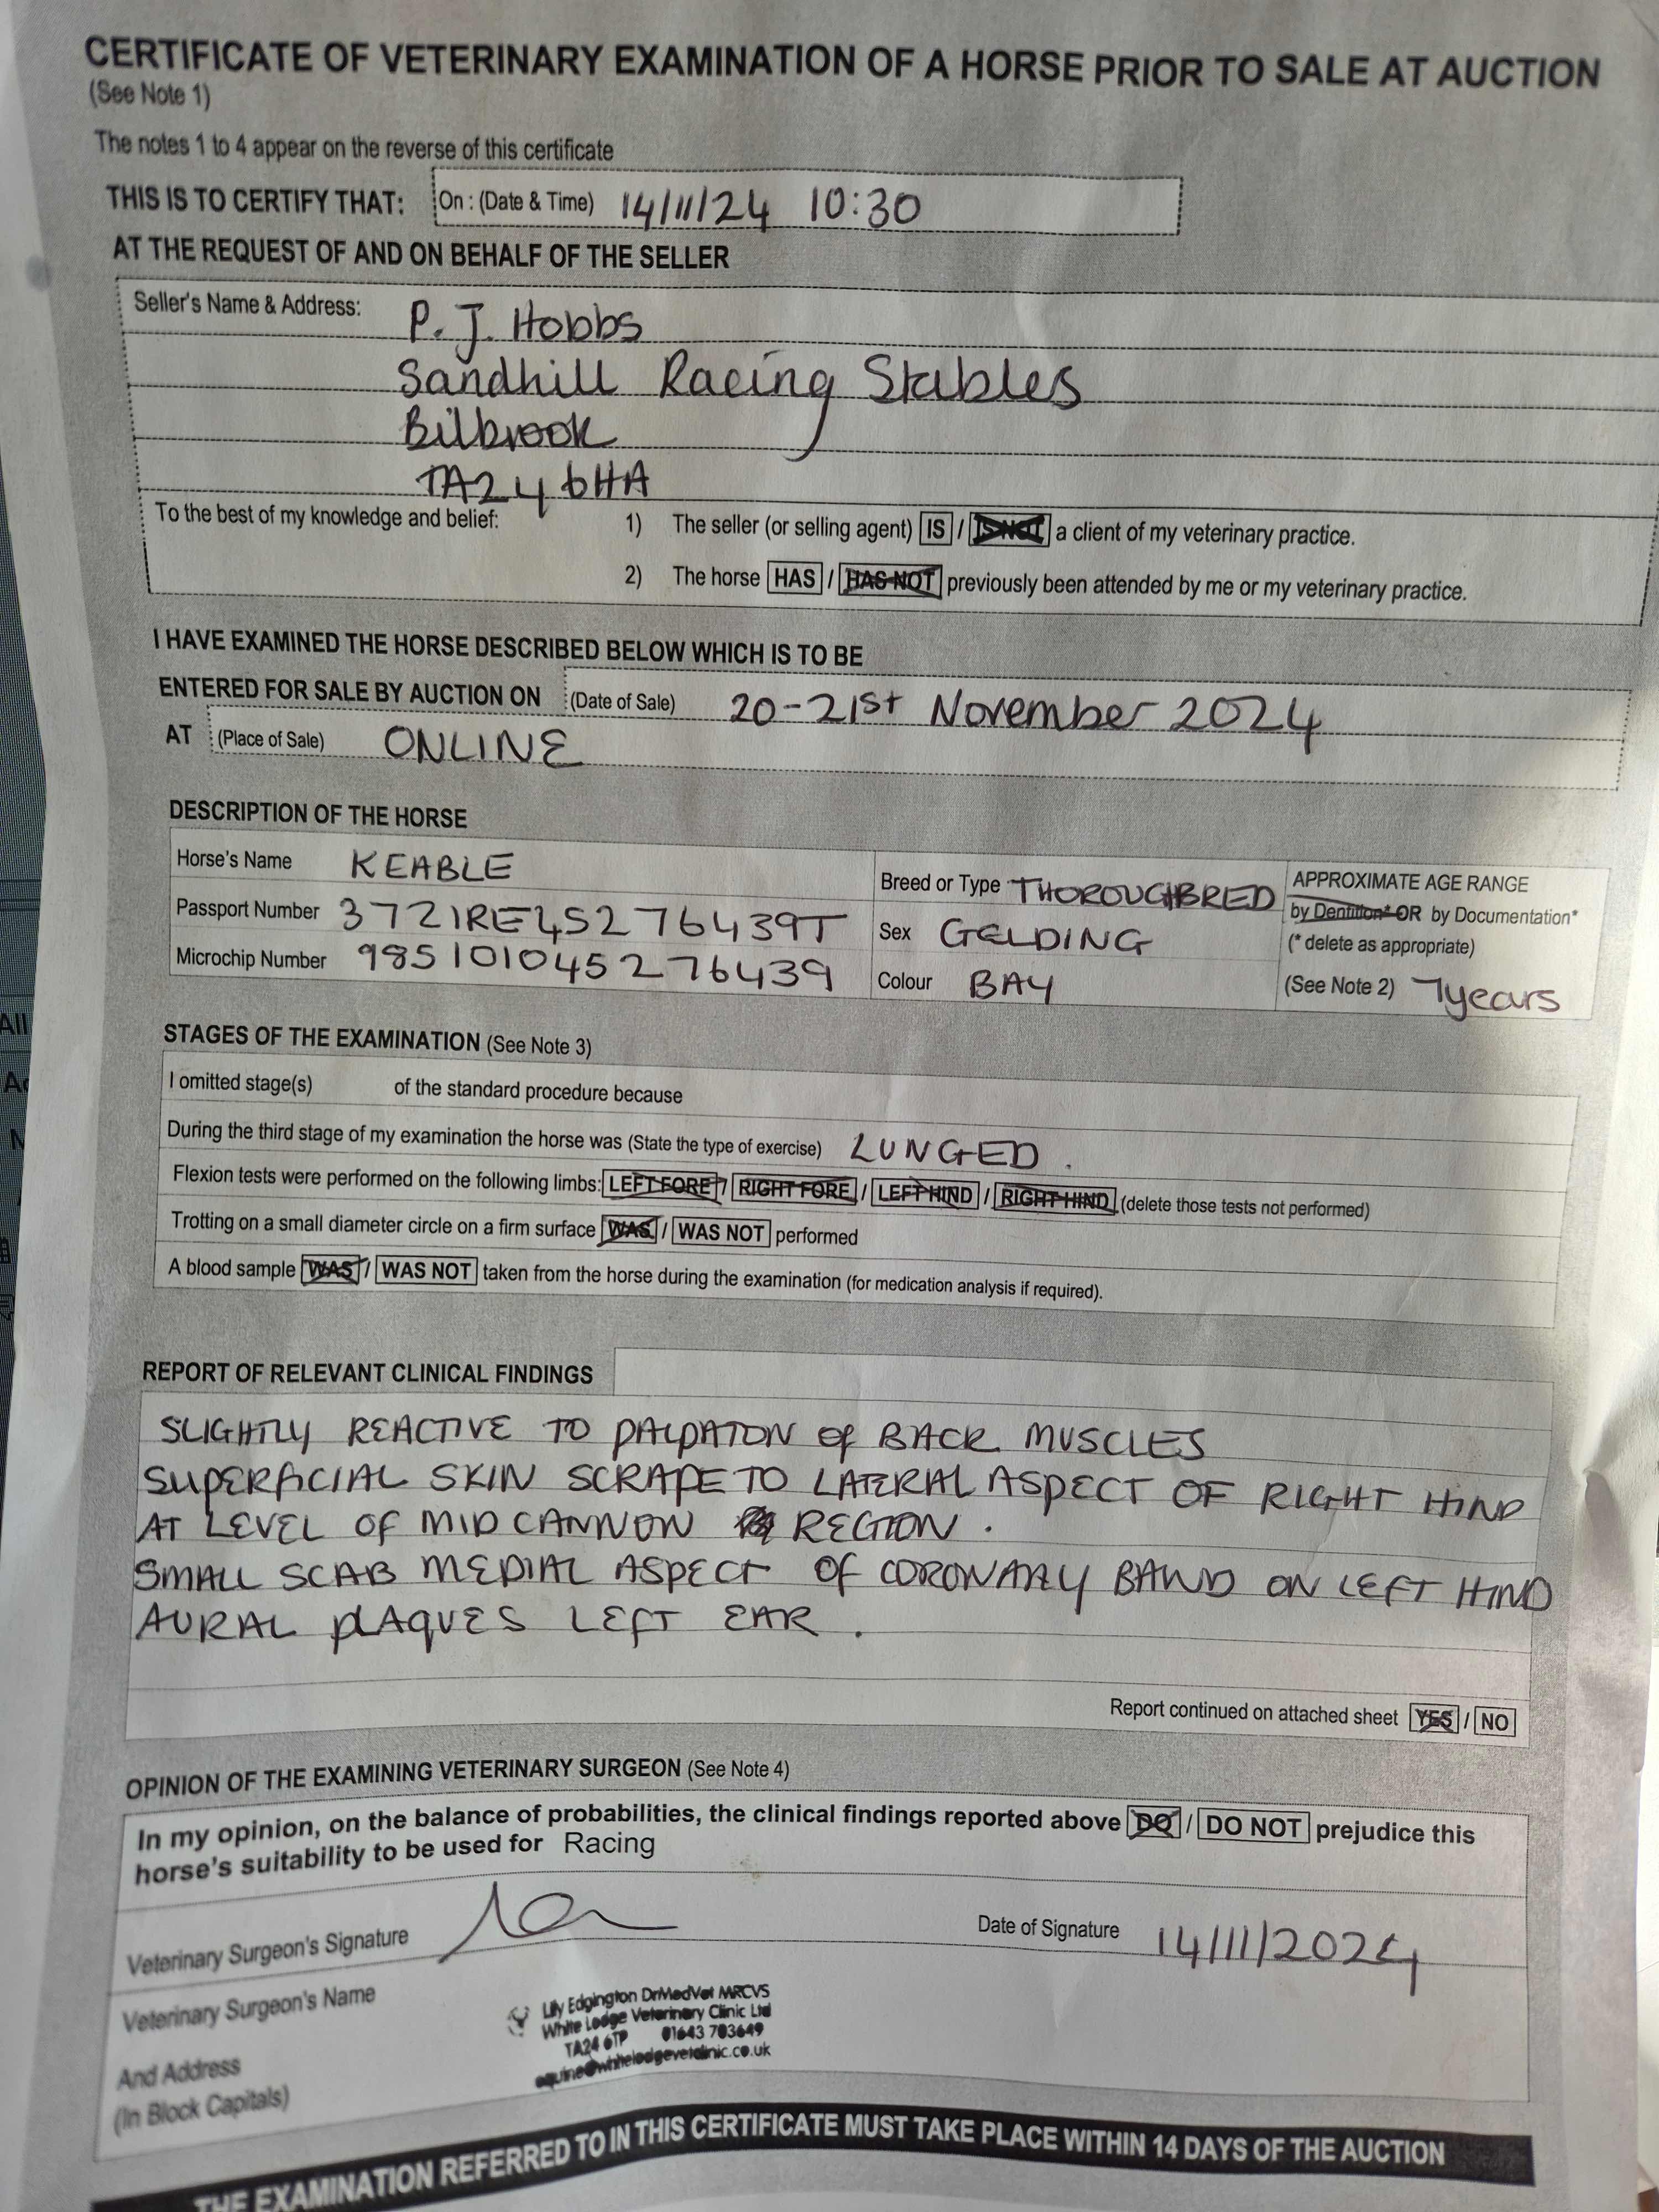 CERTIFICATE OF VETERINARY EXAMINATION OF A HORSE PRIOR TO SALE AT AUCTION
(See Note 1)
The notes 1 to 4 appear on the reverse of this certificate
THIS IS TO CERTIFY THAT: On : (Date & Time) 14/11/24 10:30
AT THE REQUEST OF AND ON BEHALF OF THE SELLER
Seller's Name & Address: P. J. Hobbs
Sandhill Racing Stables
Bilbrook
TA24 6HA
To the best of my knowledge and belief: 1) The seller (or selling agent) IS / IS NOT a client of my veterinary practice.
2) The horse HAS / HAS NOT previously been attended by me or my veterinary practice.
I HAVE EXAMINED THE HORSE DESCRIBED BELOW WHICH IS TO BE
ENTERED FOR SALE BY AUCTION ON (Date of Sale) 20-21st November 2024
AT (Place of Sale) ONLINE
DESCRIPTION OF THE HORSE
Horse's Name KEABLE Breed or Type THOROUGHBRED APPROXIMATE AGE RANGE
Passport Number 372IRE45276439T Sex GELDING by Dentition* OR by Documentation*
(* delete as appropriate)
Microchip Number 985101045276439 Colour BAY (See Note 2) 7years
STAGES OF THE EXAMINATION (See Note 3)
I omitted stage(s) of the standard procedure because
During the third stage of my examination the horse was (State the type of exercise) LUNGED.
Flexion tests were performed on the following limbs: LEFT FORE / RIGHT FORE / LEFT HIND / RIGHT HIND (delete those tests not performed)
Trotting on a small diameter circle on a firm surface WAS / WAS NOT performed
A blood sample WAS / WAS NOT taken from the horse during the examination (for medication analysis if required).
REPORT OF RELEVANT CLINICAL FINDINGS
SLIGHTLY REACTIVE TO PALPATON OF BACK MUSCLES
SUPERFICIAL SKIN SCRAPE TO LATERAL ASPECT OF RIGHT HIND
AT LEVEL OF MID CANNON REGION.
SMALL SCAB MEDIAL ASPECT OF CORONARY BAND ON LEFT HIND
AURAL PLAQUES LEFT EAR.
Report continued on attached sheet YES / NO
OPINION OF THE EXAMINING VETERINARY SURGEON (See Note 4)
In my opinion, on the balance of probabilities, the clinical findings reported above DO / DO NOT prejudice this
horse's suitability to be used for Racing
Veterinary Surgeon's Signature Date of Signature 14/11/2024
Veterinary Surgeon's Name
And Address
(In Block Capitals)
Lily Edgington DrMedVet MRCVS
White Lodge Veterinary Clinic Ltd
TA24 6TP 01643 703649
equine@whitelodgevetclinic.co.uk
THE EXAMINATION REFERRED TO IN THIS CERTIFICATE MUST TAKE PLACE WITHIN 14 DAYS OF THE AUCTION